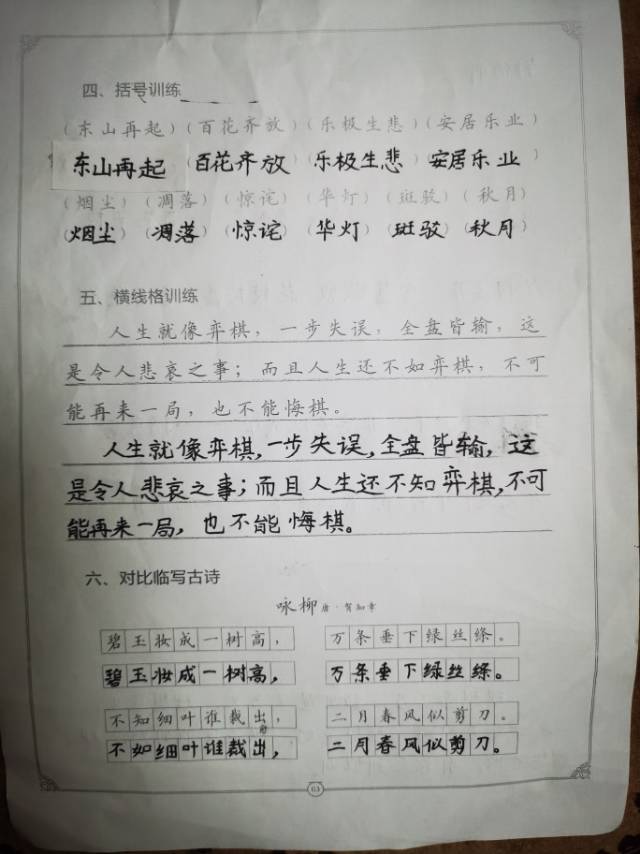 四、括号训练
(东山再起)(百花齐放)(乐极生悲)(安居乐业)
东山再起 百花齐放 乐极生悲 安居乐业)
(烟尘)(凋落)(惊诧)(华灯)(斑驳)(秋月)
(烟尘)(凋落)(惊诧)(华灯)(斑驳)(秋月)
五、横线格训练
人生就像弈棋，一步失误，全盘皆输，这
是令人悲哀之事；而且人生还不如弈棋，不可
能再来一局，也不能悔棋。
人生就像弈棋，一步失误，全盘皆输，这
是令人悲哀之事；而且人生还不知弈棋，不可
能再来一局，也不能悔棋。
六、对比临写古诗
咏柳 唐·贺知章
碧玉妆成一树高， 万条垂下绿丝绦。
碧玉妆成一树高， 万条垂下绿丝绦。
不知细叶谁裁出， 二月春风似剪刀。
不如细叶谁裁出， 二月春风似剪刀。
63